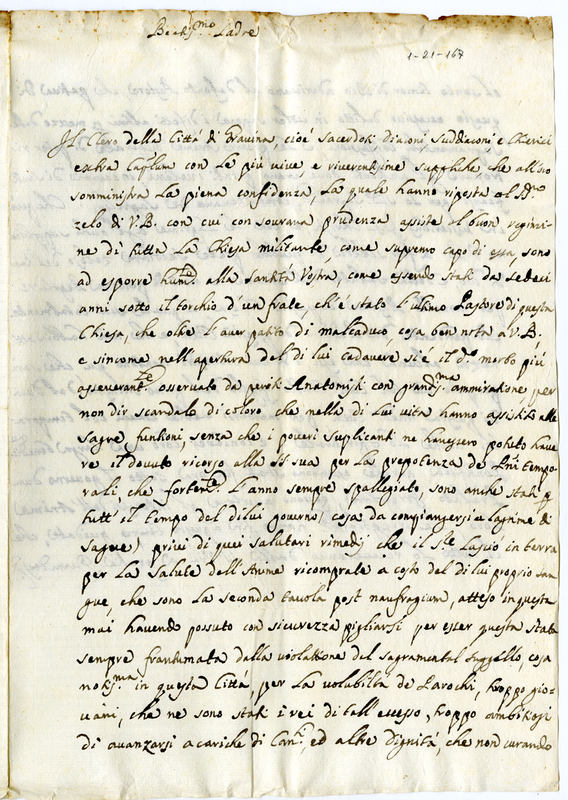 Beatiss.mo Padre
1-21-167
Il Clero della Città di Gravina, cioè sacerdoti diaconi, suddiaconi, e Chierici
extra Cap.lum con le più vive, e riverentissime suppliche che all'oro
somministra la piena confidenza, la quale hanno riposta al S.mo
zelo di V.B. con cui con sourana prudenza assiste al buon regimi-
ne di tutta la Chiesa militante, come supremo capo di essa, sono
ad esporre hum.te alla Santità Vostra, come essendo stati da sedeci
anni sotto il torchio d'un frale, ch'è stato l'ultimo Pastore di questa
Chiesa, che oltre l'aver patito di malcaduco, cosa ben nota a V.B.
e sincome nell'apertura del di lui cadavere si è il d.o morbo più
asseverant.te osservato da periti Anatomisti con grandiss.ma ammiratione per
non dir scandalo di coloro che nella di lui vita hanno assistito alle
sagre funtioni, senza che i poveri suplicanti ne havessero potuto have
re il dovuto ricorso alla S. sua per la prepotenza de P.ni tempo-
rali, che fortem.te l'anno sempre spallegiato, sono anche stati p
tutt'il tempo del dilui governo (cosa da compiangersi a lagrime di
sague) privi di quei salutari rimedij che il S.re lasciò in terra
per la salute dell'Anime ricomprate a costo del di lui proprio san
gue, che sono la seconda tavola post naufragium, atteso in questa
mai havendo possuto con sicurezza pigliarsi per esser questa stata
sempre frantumata dalla violattione del sagramental suggello, cosa
notiss.ma in questa Città, per la volubiltà de Parochi, troppo gio-
vani, che ne sono stati i rei di tall'eccesso, troppo ambitiosi
di avanzarsi a cariche di Can.ci, ed altre dignità, che non curando